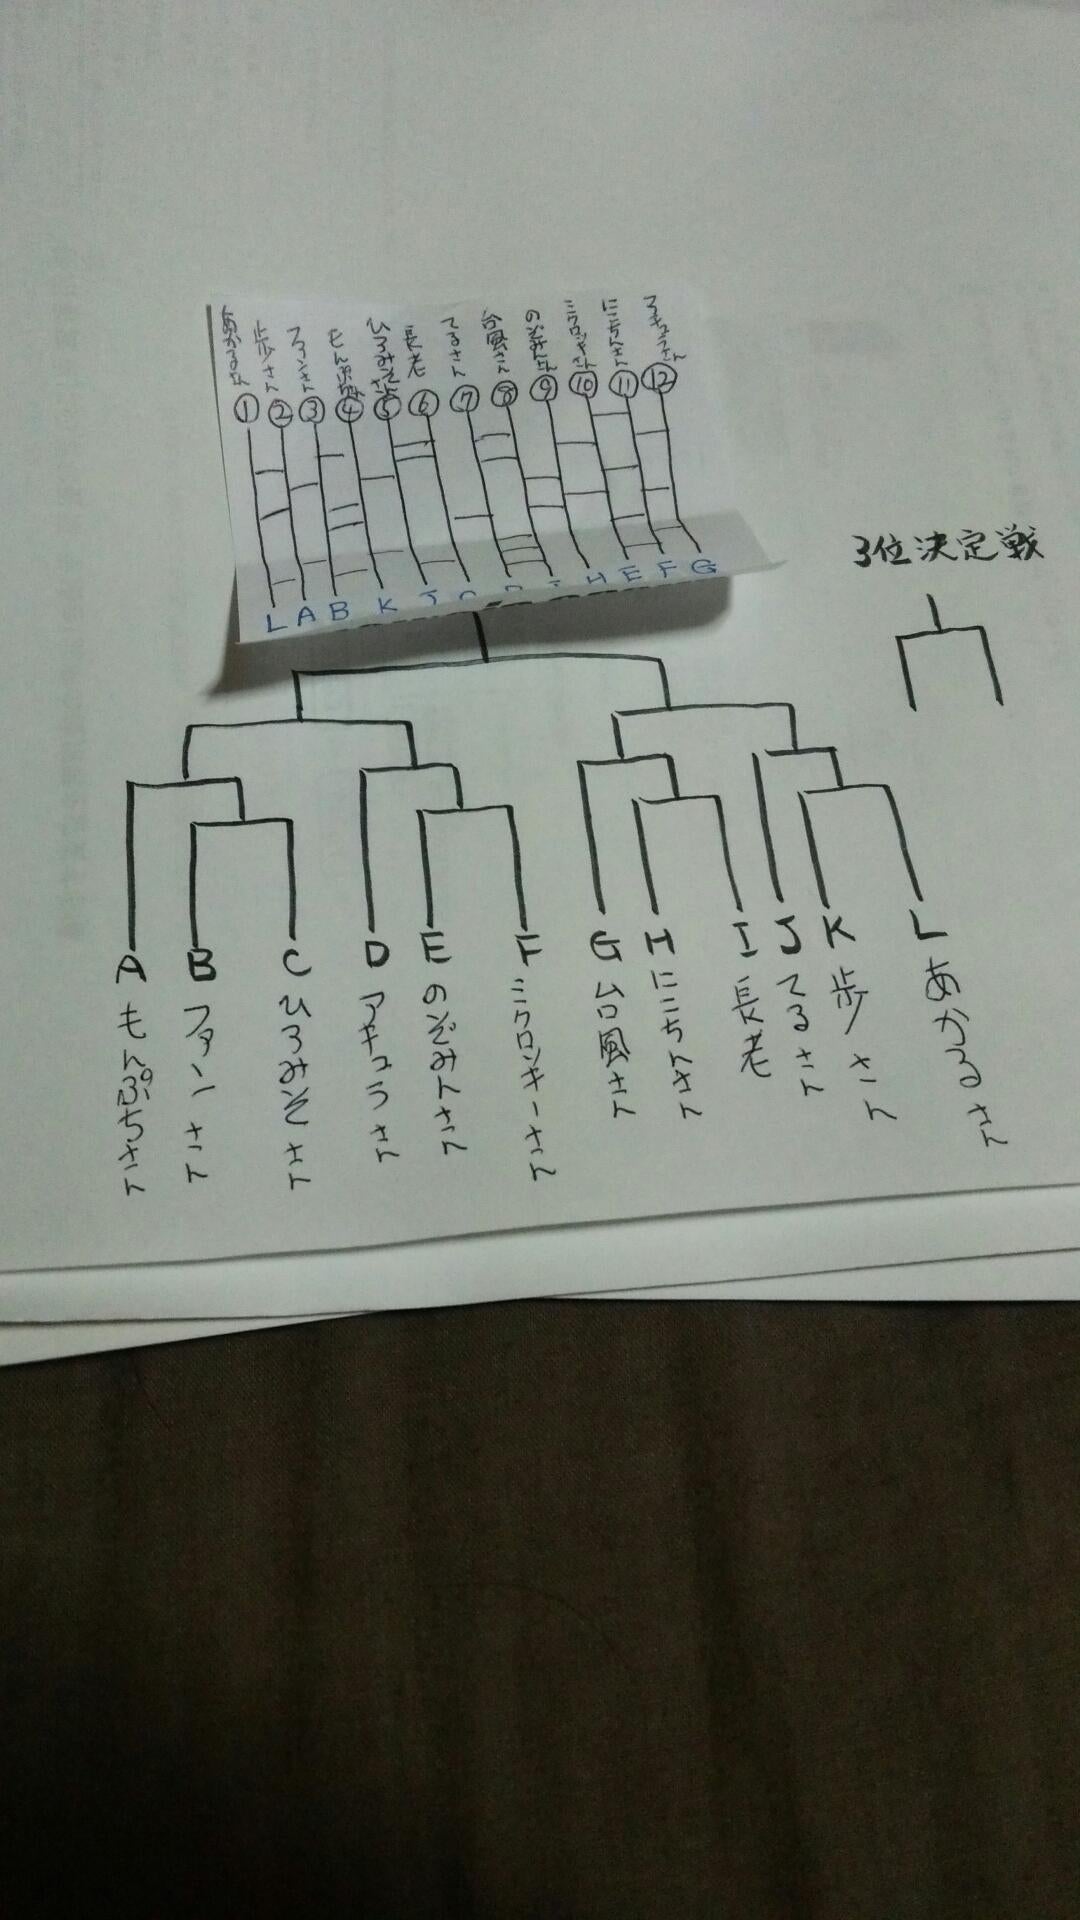 あかるさん
歩さん
ファンさん
もんぷちさん
ひろみそさん
長老
てるさん
台風さん
のぞみんさん
ミクロンキーさん
にこちんさん
アキュラさん
① ② ③ ④ ⑤ ⑥ ⑦ ⑧ ⑨ ⑩ ⑪ ⑫
L A B K J C D I H E F G
3位決定戦
A もんぷちさん
B ファンさん
C ひろみそさん
D アキュラさん
E のぞみんさん
F ミクロンキーさん
G 台風さん
H にこちんさん
I 長老
J てるさん
K 歩さん
L あかるさん